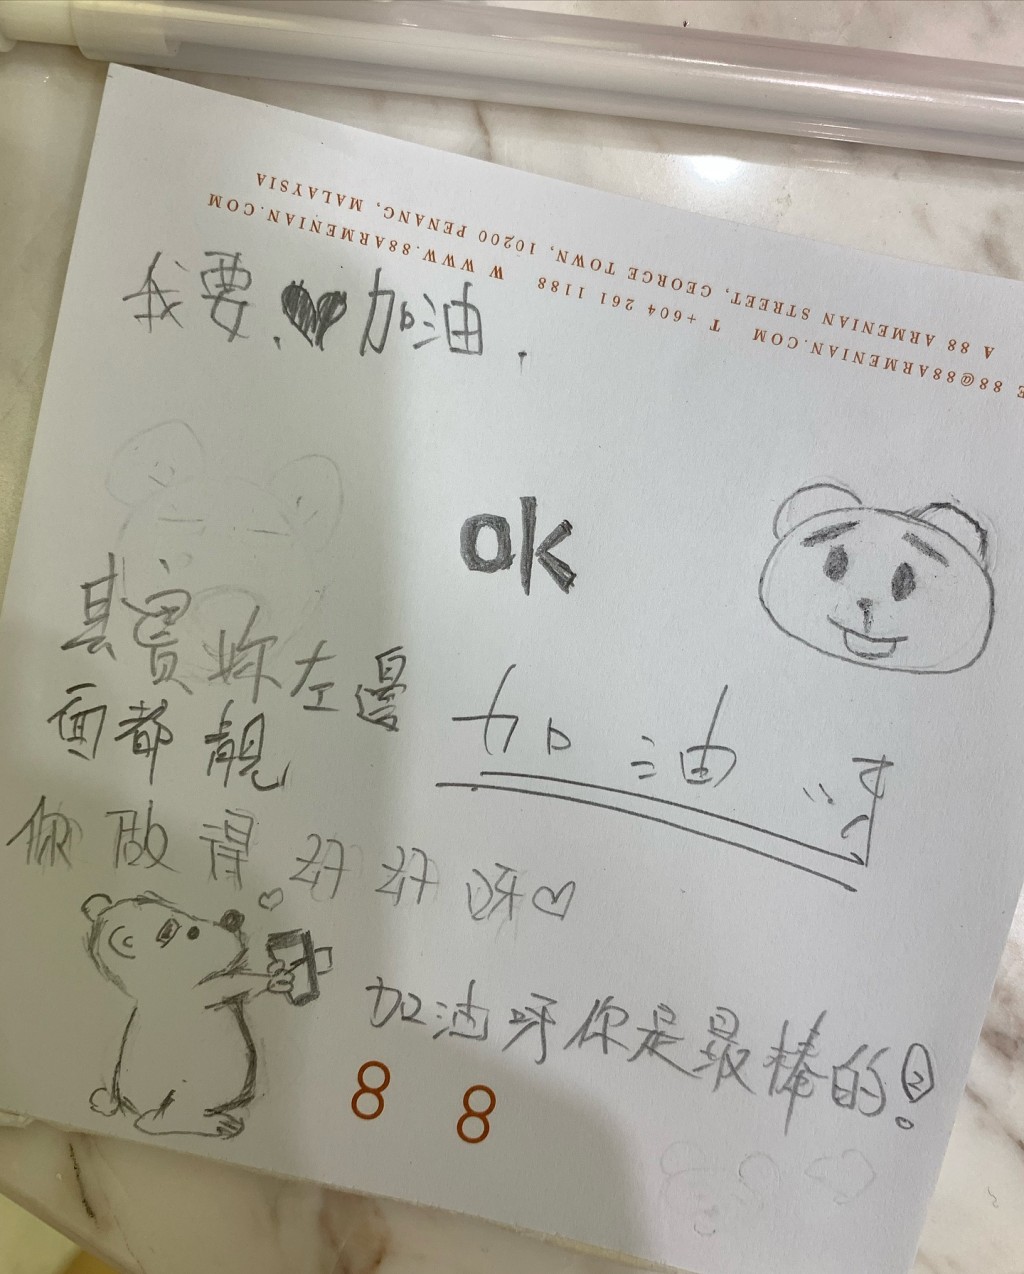 A 88 ARMENIAN STREET, GEORGE TOWN, 10200 PENANG, MALAYSIA
E 88@88ARMENIAN.COM T +604 261 1188 W WWW.88ARMENIAN.COM
我要.♥加油.
ok
真買妳左邊
面都靚
加油
你做得好好呀♡
加油呀你是最棒的!
88